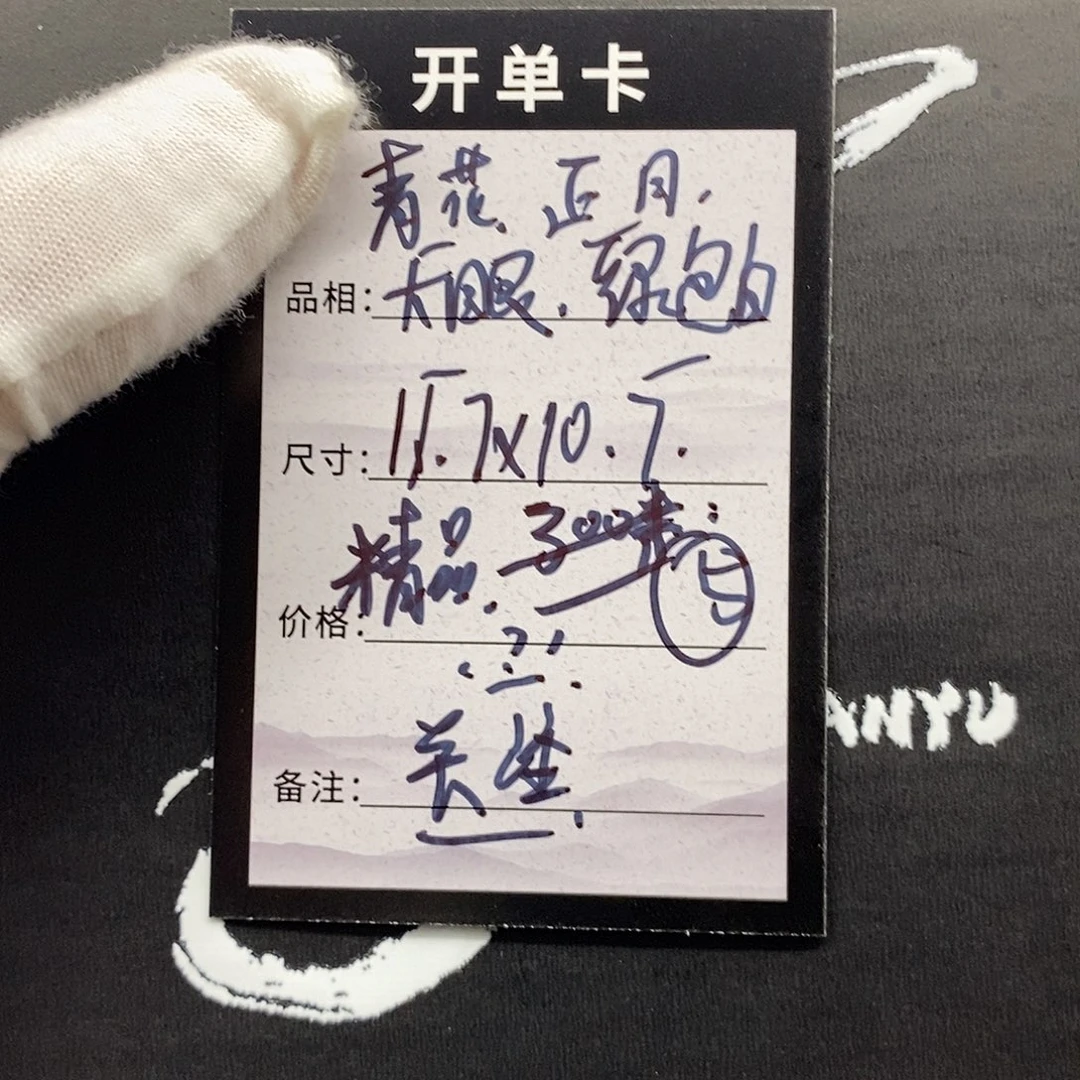 开单卡
青花. 正月.
品相: 大眼. 绿包白
尺寸: 11.7x10.7.
价格: 精品. 300
备注: 关坐.
ANYU